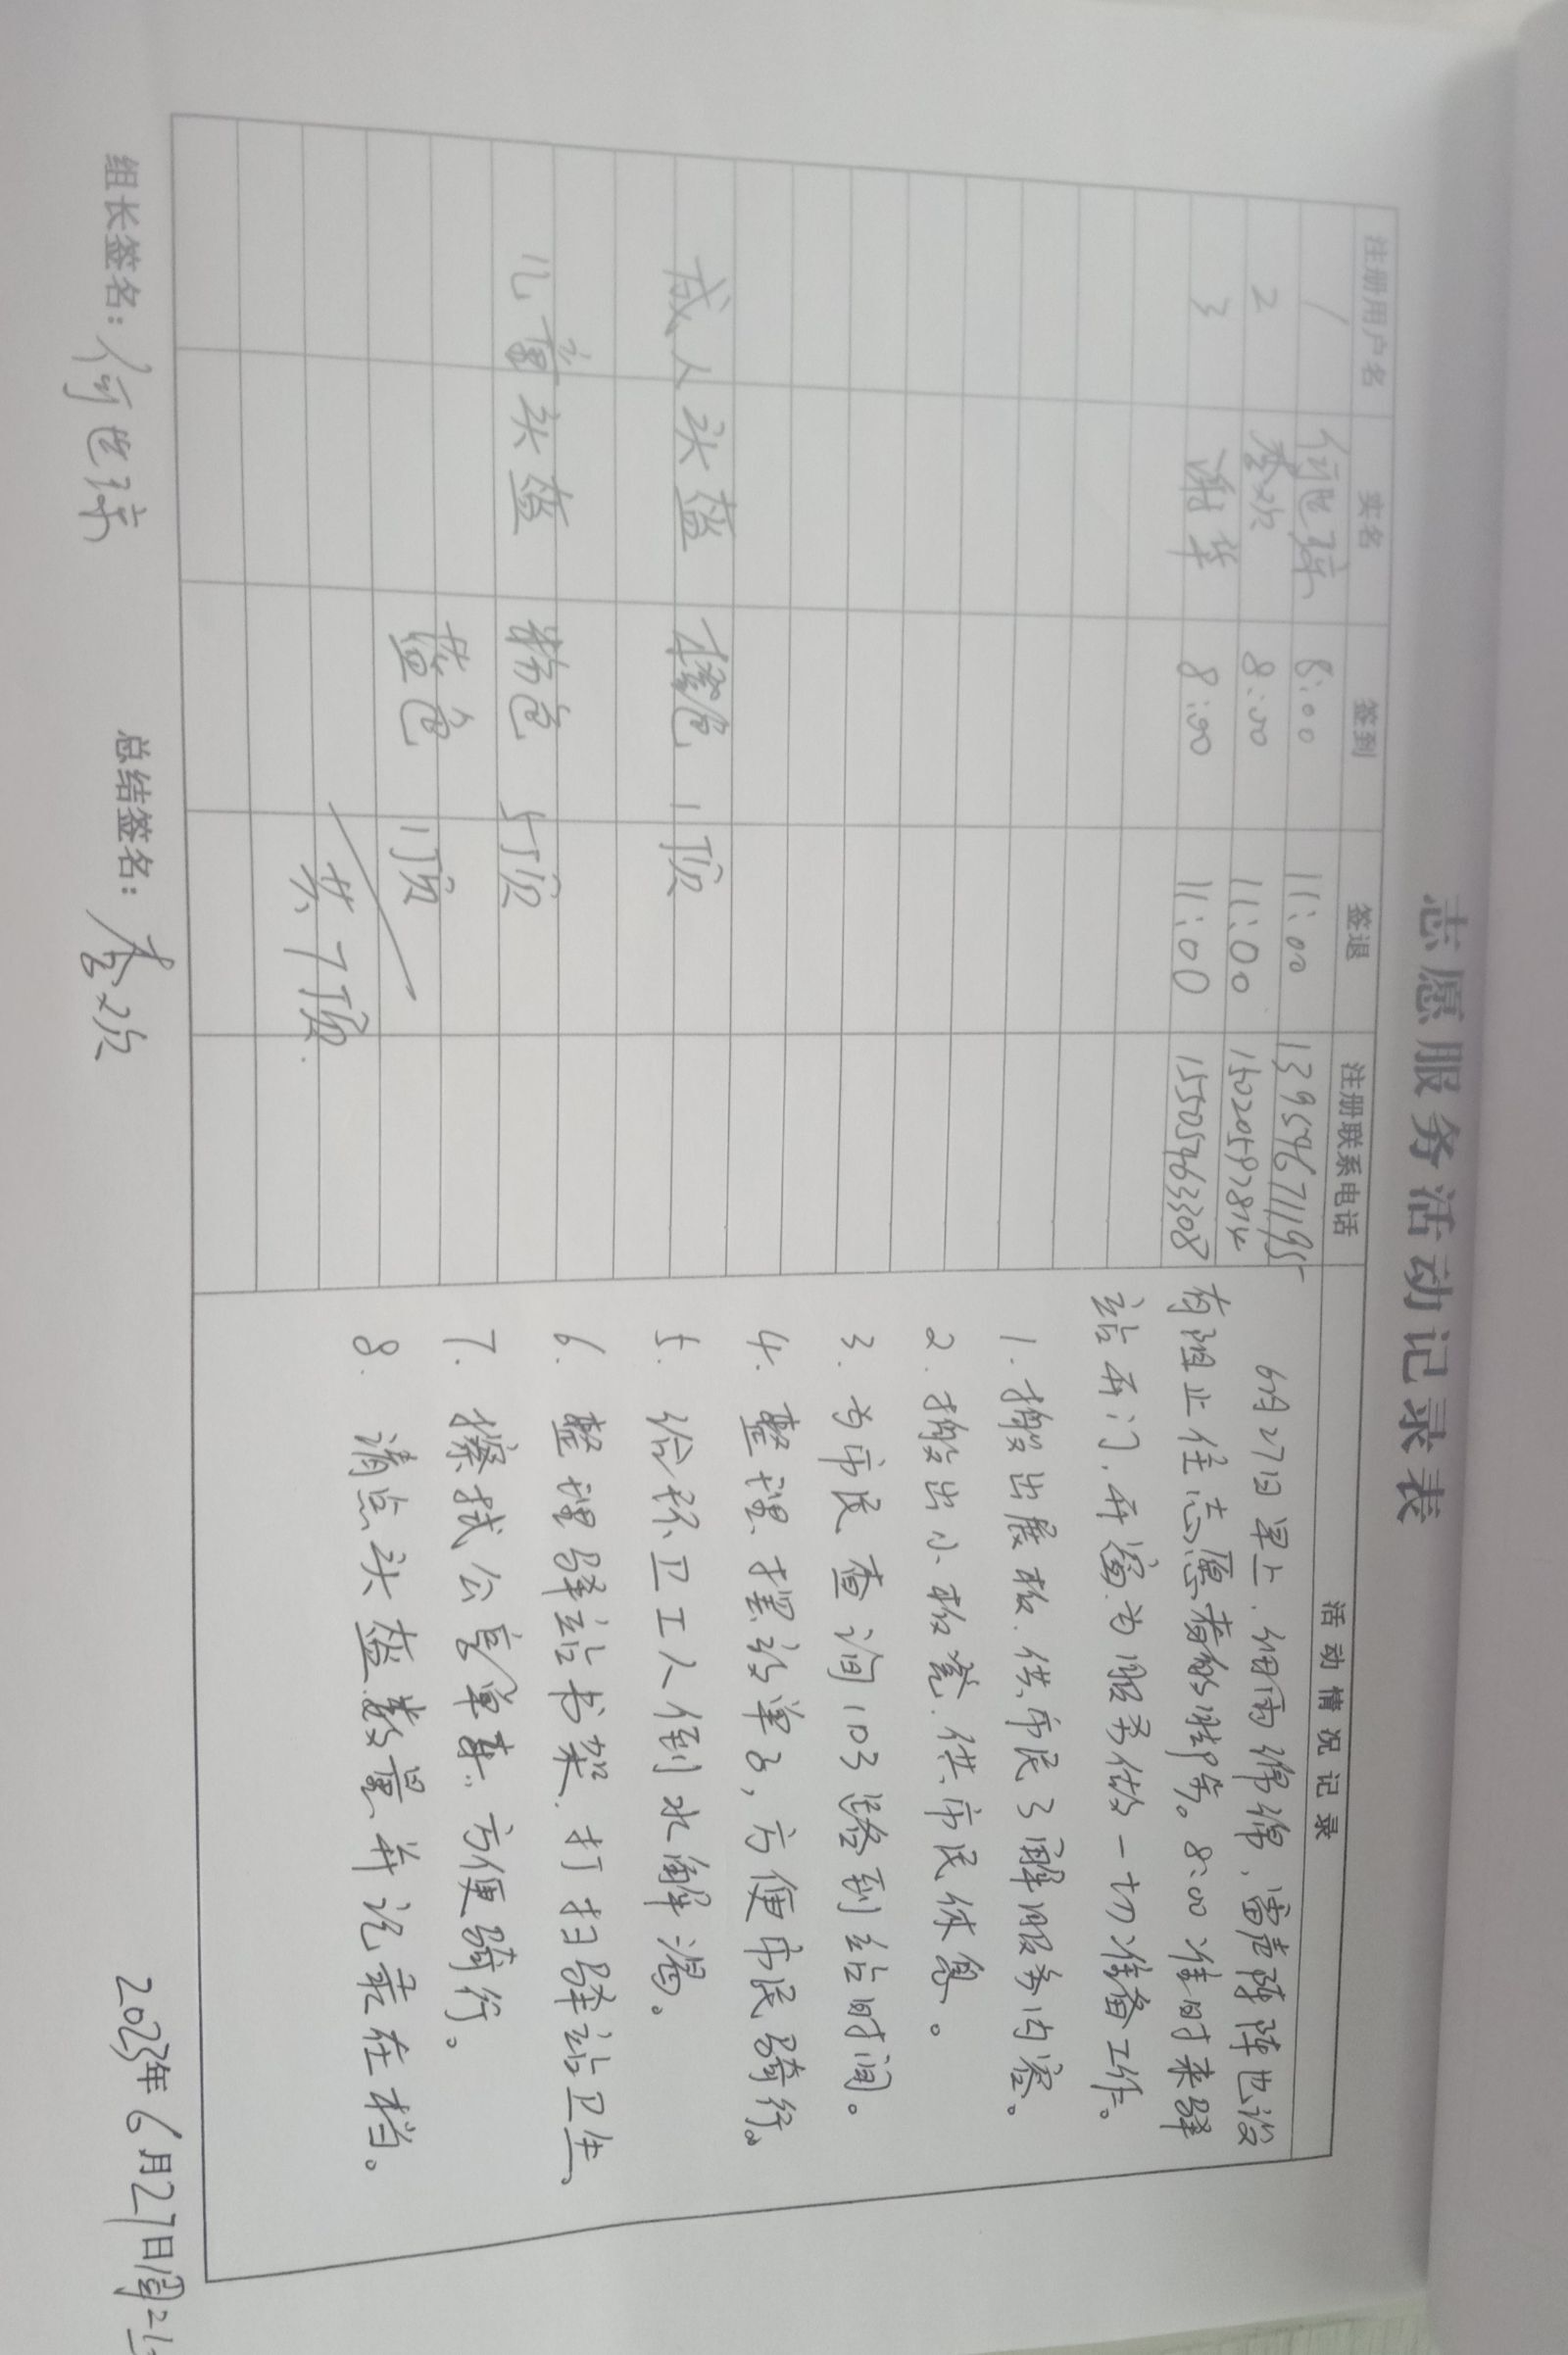 志愿服务活动记录表
注册用户名 实名 签到 签退 注册联系电话 活动情况记录
1 8:00 11:00 13954671195
2 8:00 11:00
3 谢华 8:00 11:00 15505463308
6月27日早上.细雨绵绵、雷声阵阵也没
有阻止住志愿者的脚步。8:00准时来驿
站开门.开窗.为服务做一切准备工作。
1.搬出展板.供市民了解服务内容。
2.搬出小板凳.供市民休息。
3.为市民查询103路到站时间。
4.整理摆放单车,方便市民骑行。
5.给环卫工人倒水解渴。
6.整理驿站书架.打扫驿站卫生、
7.擦拭公益单车.方便骑行。
8.清点头盔数量并记录在档。
成人头盔 橙色 1顶
儿童头盔 粉色 5顶
蓝色 1顶
共7顶
组长签名: 总结签名: 2023年6月27日周二